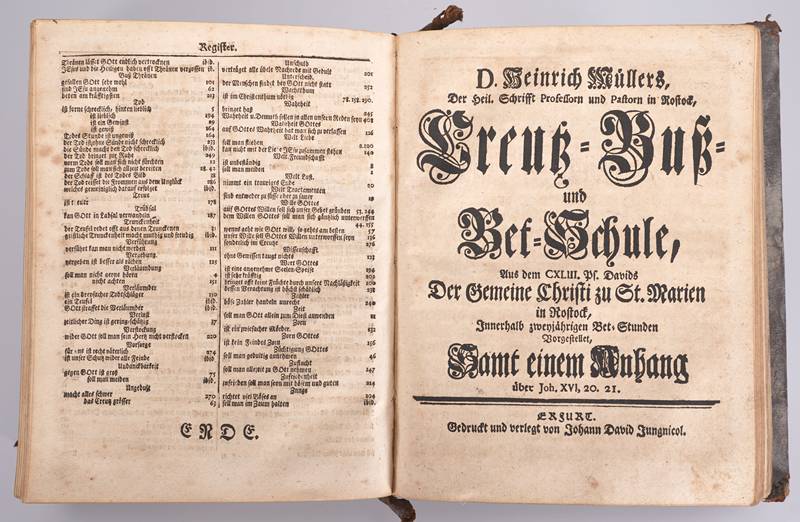 Register.
Thränen lässet GOtt endlich vertrocknen ibid.
JEsus und die Heiligen haben offt Thränen vergossen ib.
Buß Thränen
gefallen GOtt sehr wohl 105
sind JEsu angenehm 62
beten am kräfftigsten 213
Tod
ist ferne schrecklich, hinten lieblich 5
ist lieblich 194
ist ein Gewinst
ist gewiß 264
Todes Stunde ist ungewiß
der Tod ist ohne Sünde nicht schrecklich 271
die Sünde macht den Tod schrecklich ibid.
der Tod bringet zur Ruhe 249
vorm Tode soll man sich nicht fürchten
zum Tode soll man sich allzeit bereiten 18. 42
der Schlaff ist des Todes Bild 18
der Tod reisset die Frommen aus dem Unglück 186
welches gemeiniglich darauf erfolget ibid.
Treue
187
Trübsal
kan GOtt in Labsal verwandeln
Trunckenheit
der Teufel redet offt aus denen Trunckenen 21
geistliche Trunckenheit macht muthig und freudig ibid.
Verführung
verführt kan man nicht werden 111
Vergebung
vergeben ist besser als rächen
Verläumbdung
soll man nicht gerne hören
nicht achten 151
Verläumder
ist ein dreyfacher Todtschläger 110
ein Teufel ibid.
GOtt straffet die Verläumder ibid.
Verlust
zeitlicher Ding ist gering-schätzig 37
Verstockung
wider GOtt soll man sein Hertz nicht verstocken 220
Vorsorge
274
ist unser Schutz wider alle Feinde ibid.
Undanckbarkeit
gegen GOtt ist groß 75
soll man meiden ibid.
Ungedult
macht alles schwer 270
das Creutz grösser 63
Unschuld
verträget alle übele Nachrede mit Gedult 201
Unterscheid
der Menschen findet bey GOtt nicht statt 252
Wachsthum
ist im Christenthum nöthig 78. 152. 190.
Wahrheit
bringet haß 245
Wahrheit u. Demuth sollen in allen unsren Reden seyn
Wahrheit GOttes
auf GOttes Wahrheit hat man sich zu verlassen 126
Welt Liebe
soll man fliehen 2.220
kan nicht mit der Lie'e JEsu zusammen stehen 140
Welt Freundschafft
ist unbeständig
soll man meiden
Welt Lust.
nimmt ein trauriges Ende 20
Welt Tractementen
sind entweder zu süsse oder zu sauer
Wille GOttes
auf GOttes Willen soll sich unser Gebet gründen 53. 244
dem Willen GOttes soll man sich gäntzlich unterwerffen
44. 155
wenns geht wie GOtt will, so gehts am besten 57
unser Wille soll GOttes Willen unterworffen seyn 196
sonderlich im Creutz 276
Wissenschafft.
ohne Gewissen taugt nichts
Wort GOttes
ist eine angenehme Seelen-Speise 194
ist sehr kräfftig 202
bringet offt keine Früchte durch unsere Nachläßigkeit 200
dessen Verachtung ist höchst schädlich 238
Zahler
böse Zahler handeln unrecht 240
Zeit
soll man GOtt allein zum Dienst anwenden 11
Zorn
ist ein zwiefacher Mörder. 132
Zorn GOttes
ist kein Feindes Zorn 256
Züchtigung GOttes
soll man gedultig annehmen 46
Zuflucht
soll man allezeit zu GOtt nehmen 247
Zufriedenheit
zufrieden soll man seyn mit bösem und guten 224
Zunge
richtet viel Böses an 104
soll man im Zaum halten ibid.
E N D E.
D. Heinrich Müllers,
Der Heil. Schrifft Professorn und Pastorn in Rostock,
Creutz-Buß-
und
Bet-Schule,
Aus dem CXLIII. Ps. Davids
Der Gemeine Christi zu St. Marien
in Rostock,
Innerhalb zweyjährigen Bet-Stunden
Vorgestellet,
Samt einem Anhang
über Joh. XVI, 20. 21.
ERFURT.
Gedruckt und verlegt von Johann David Jungnicol.